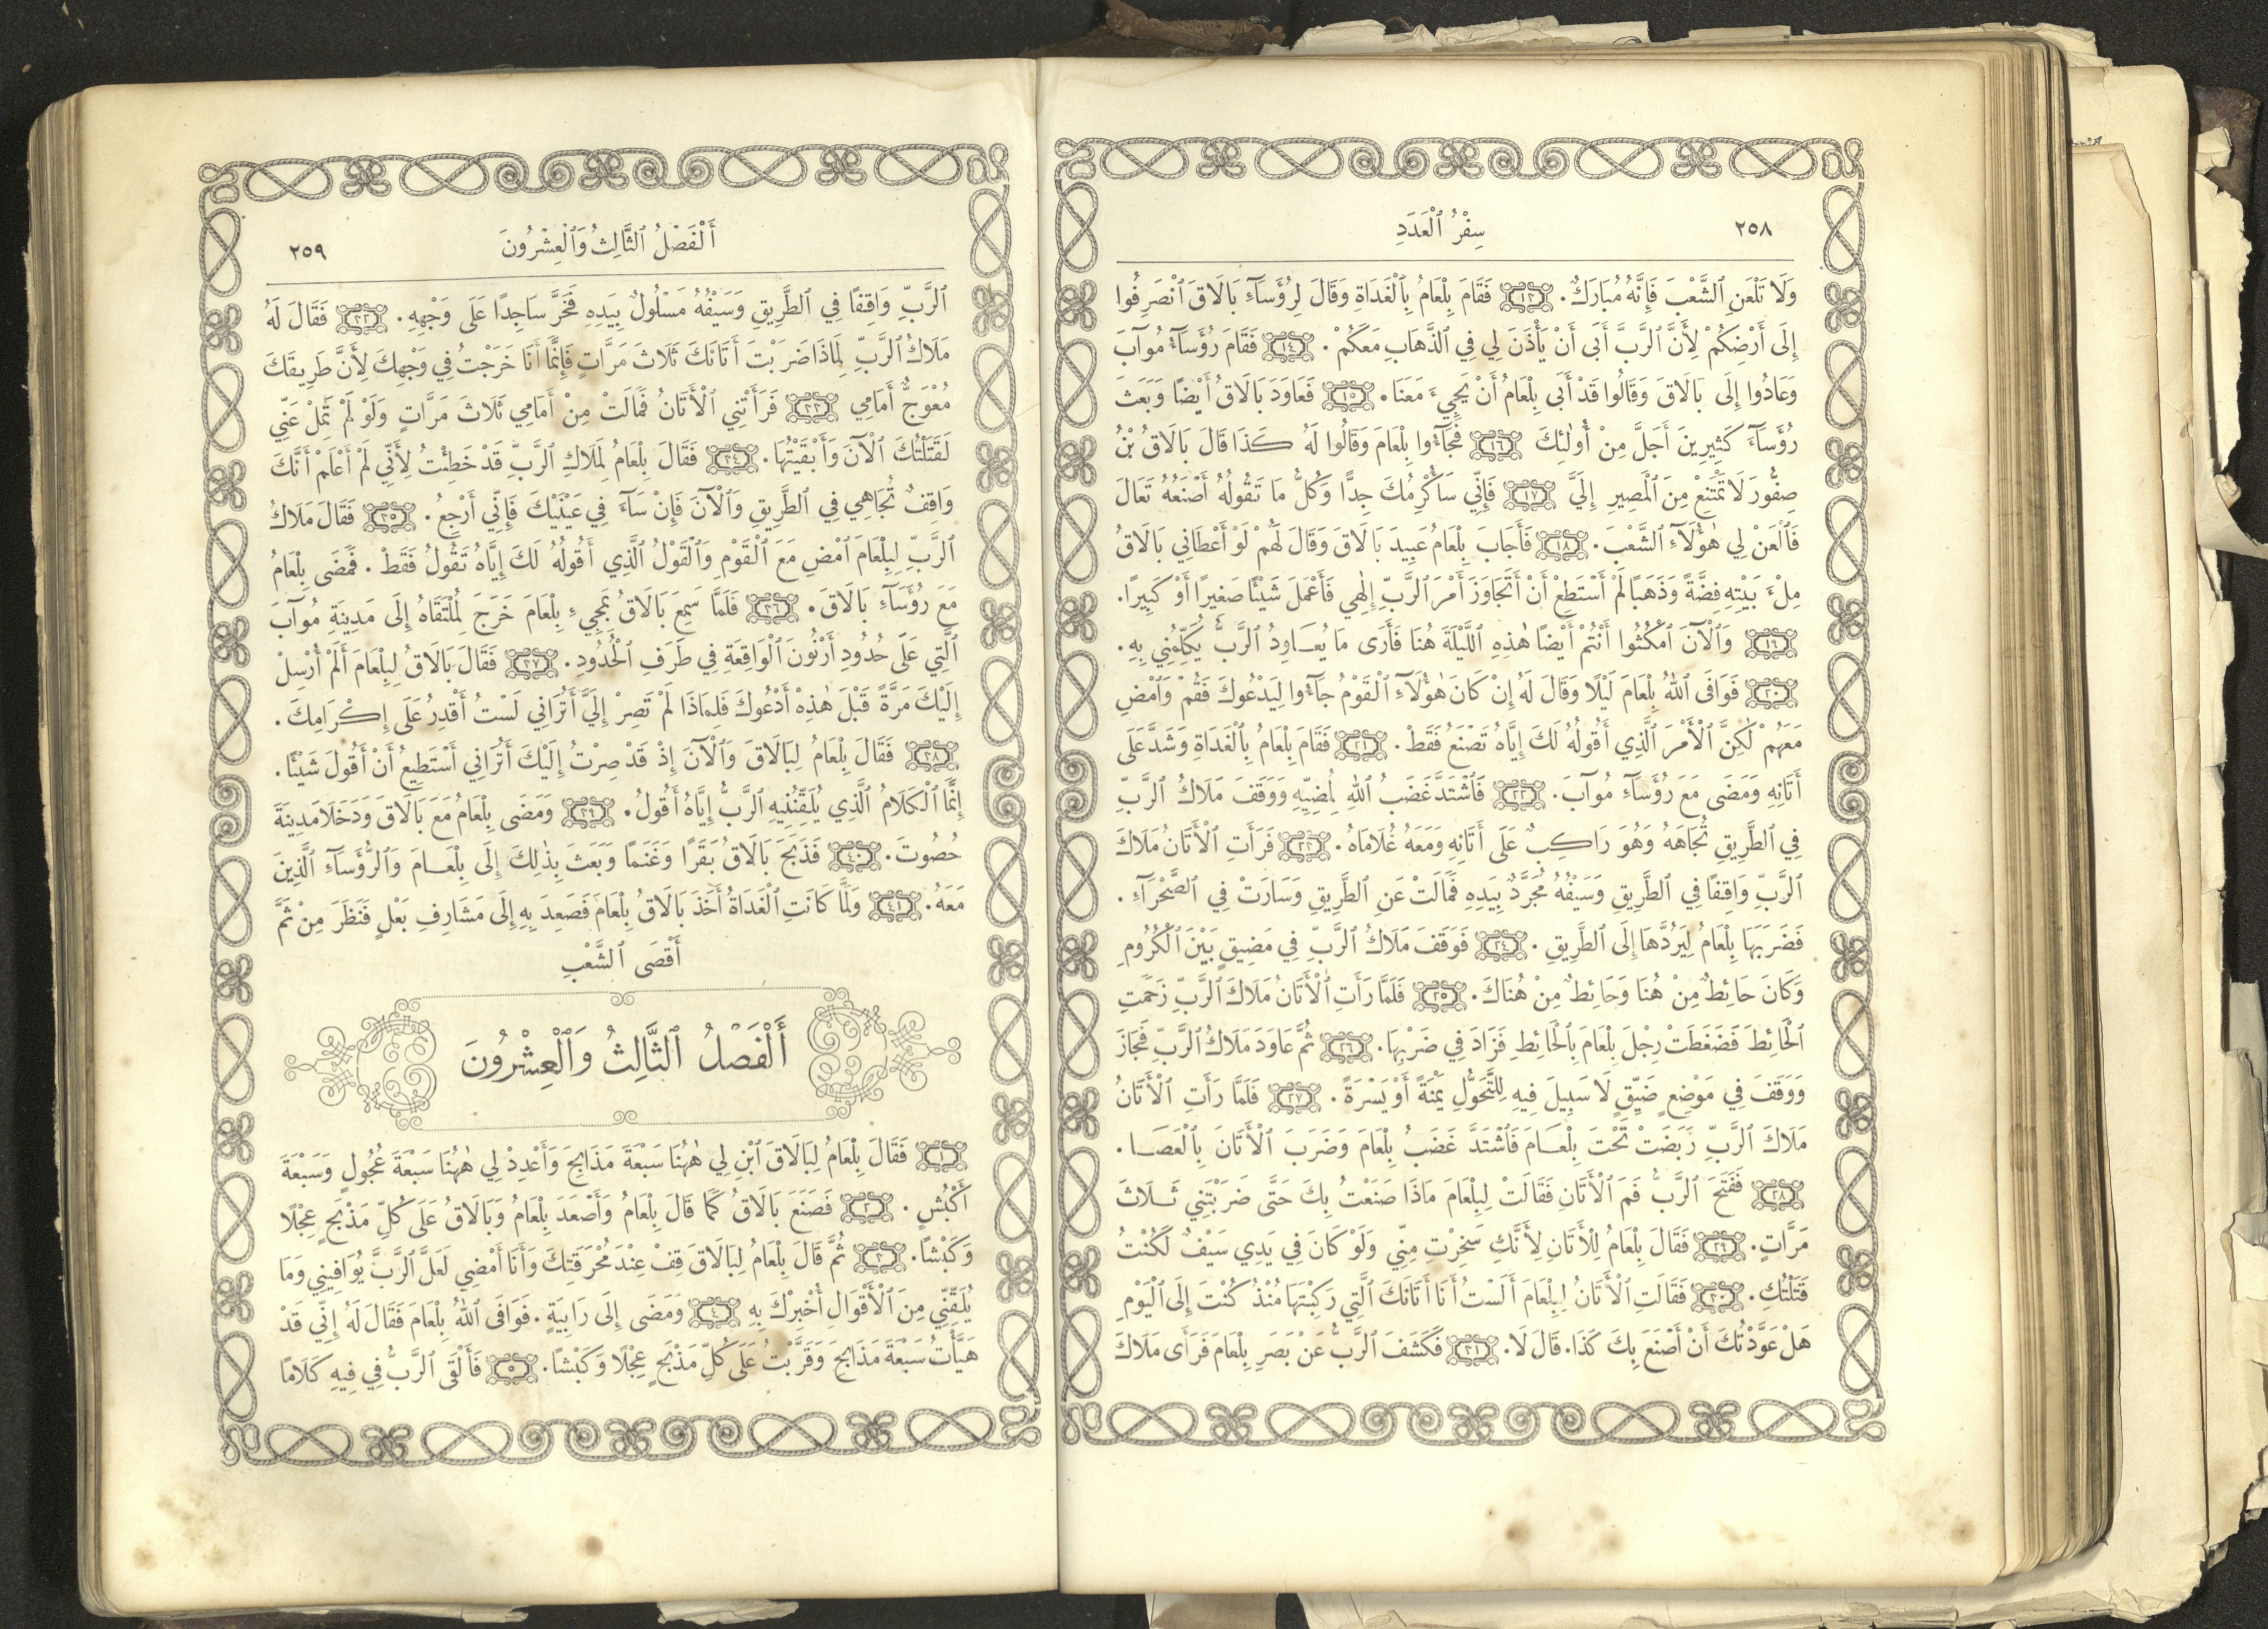 ٢٥٨
سِفْرُ ٱلْعَدَدِ
وَلَا تَلْعَنِ ٱلشَّعْبَ فَإِنَّهُ مُبَارَكٌ. ١٣ فَقَامَ بِلْعَامُ بِٱلْغَدَاةِ وَقَالَ لِرُؤَسَآءِ بَالَاقَ ٱنْصَرِفُوا
إِلَى أَرْضِكُمْ لِأَنَّ ٱلرَّبَّ أَبَى أَنْ يَأْذَنَ لِي فِي ٱلذَّهَابِ مَعَكُمْ. ١٤ فَقَامَ رُؤَسَآءُ مُوآبَ
وَعَادُوا إِلَى بَالَاقَ وَقَالُوا قَدْ أَبَى بِلْعَامُ أَنْ يَجِيءَ مَعَنَا. ١٥ فَعَاوَدَ بَالَاقُ أَيْضًا وَبَعَثَ
رُؤَسَآءَ كَثِيرِينَ أَجَلَّ مِنْ أُولٰئِكَ ١٦ فَجَآءُوا بِلْعَامَ وَقَالُوا لَهُ كَذَا قَالَ بَالَاقُ بْنُ
صِفُّورَ لَا تَمْتَنِعْ مِنَ ٱلْمَصِيرِ إِلَيَّ ١٧ فَإِنِّي سَأُكْرِمُكَ جِدًّا وَكُلُّ مَا تَقُولُهُ أَصْنَعُهُ تَعَالَ
فَٱلْعَنْ لِي هٰؤُلَآءِ ٱلشَّعْبَ. ١٨ فَأَجَابَ بِلْعَامُ عَبِيدَ بَالَاقَ وَقَالَ لَهُمْ لَوْ أَعْطَانِي بَالَاقُ
مِلْءَ بَيْتِهِ فِضَّةً وَذَهَبًا لَمْ أَسْتَطِعْ أَنْ أَتَجَاوَزَ أَمْرَ ٱلرَّبِّ إِلٰهِي فَأَعْمَلَ شَيْئًا صَغِيرًا أَوْ كَبِيرًا.
١٩ وَٱلْآنَ ٱمْكُثُوا أَنْتُمْ أَيْضًا هٰذِهِ ٱللَّيْلَةَ هُنَا فَأَرَى مَا يُعَاوِدُ ٱلرَّبُّ يُكَلِّمُنِي بِهِ.
٢٠ فَوَافَى ٱللهُ بِلْعَامَ لَيْلًا وَقَالَ لَهُ إِنْ كَانَ هٰؤُلَآءِ ٱلْقَوْمُ جَآءُوا لِيَدْعُوكَ فَقُمْ وَٱمْضِ
مَعَهُمْ لٰكِنَّ ٱلْأَمْرَ ٱلَّذِي أَقُولُهُ لَكَ إِيَّاهُ تَصْنَعُ فَقَطْ. ٢١ فَقَامَ بِلْعَامُ بِٱلْغَدَاةِ وَشَدَّ عَلَى
أَتَانِهِ وَمَضَى مَعَ رُؤَسَآءِ مُوآبَ. ٢٢ فَٱشْتَدَّ غَضَبُ ٱللهِ لِمُضِيِّهِ وَوَقَفَ مَلَاكُ ٱلرَّبِّ
فِي ٱلطَّرِيقِ تُجَاهَهُ وَهُوَ رَاكِبٌ عَلَى أَتَانِهِ وَمَعَهُ غُلَامَاهُ. ٢٣ فَرَأَتِ ٱلْأَتَانُ مَلَاكَ
ٱلرَّبِّ وَاقِفًا فِي ٱلطَّرِيقِ وَسَيْفُهُ مُجَرَّدٌ بِيَدِهِ فَمَالَتْ عَنِ ٱلطَّرِيقِ وَسَارَتْ فِي ٱلصَّحْرَآءِ.
فَضَرَبَهَا بِلْعَامُ لِيَرُدَّهَا إِلَى ٱلطَّرِيقِ. ٢٤ فَوَقَفَ مَلَاكُ ٱلرَّبِّ فِي مَضِيقٍ بَيْنَ ٱلْكُرُومِ
وَكَانَ حَائِطٌ مِنْ هُنَا وَحَائِطٌ مِنْ هُنَاكَ. ٢٥ فَلَمَّا رَأَتِ ٱلْأَتَانُ مَلَاكَ ٱلرَّبِّ زَحَمَتِ
ٱلْحَائِطَ فَضَغَطَتْ رِجْلَ بِلْعَامَ بِٱلْحَائِطِ فَزَادَ فِي ضَرْبِهَا. ٢٦ ثُمَّ عَاوَدَ مَلَاكُ ٱلرَّبِّ فَجَازَ
وَوَقَفَ فِي مَوْضِعٍ ضَيِّقٍ لَا سَبِيلَ فِيهِ لِلتَّحَوُّلِ يَمْنَةً أَوْ يَسْرَةً. ٢٧ فَلَمَّا رَأَتِ ٱلْأَتَانُ
مَلَاكَ ٱلرَّبِّ رَبَضَتْ تَحْتَ بِلْعَامَ فَٱشْتَدَّ غَضَبُ بِلْعَامَ وَضَرَبَ ٱلْأَتَانَ بِٱلْعَصَا.
٢٨ فَفَتَحَ ٱلرَّبُّ فَمَ ٱلْأَتَانِ فَقَالَتْ لِبِلْعَامَ مَاذَا صَنَعْتُ بِكَ حَتَّى ضَرَبْتَنِي ثَلَاثَ
مَرَّاتٍ. ٢٩ فَقَالَ بِلْعَامُ لِلْأَتَانِ لِأَنَّكِ سَخِرْتِ مِنِّي وَلَوْ كَانَ فِي يَدِي سَيْفٌ لَكُنْتُ
قَتَلْتُكِ. ٣٠ فَقَالَتِ ٱلْأَتَانُ لِبِلْعَامَ أَلَسْتُ أَنَا أَتَانَكَ ٱلَّتِي رَكِبْتَهَا مُنْذُ كُنْتَ إِلَى ٱلْيَوْمِ
هَلْ عَوَّدْتُكَ أَنْ أَصْنَعَ بِكَ كَذَا. قَالَ لَا. ٣١ فَكَشَفَ ٱلرَّبُّ عَنْ بَصَرِ بِلْعَامَ فَرَأَى مَلَاكَ
أَلْفَصْلُ ٱلثَّالِثُ وَٱلْعِشْرُونَ
٢٥٩
ٱلرَّبِّ وَاقِفًا فِي ٱلطَّرِيقِ وَسَيْفُهُ مَسْلُولٌ بِيَدِهِ فَخَرَّ سَاجِدًا عَلَى وَجْهِهِ. ٣٢ فَقَالَ لَهُ
مَلَاكُ ٱلرَّبِّ لِمَاذَا ضَرَبْتَ أَتَانَكَ ثَلَاثَ مَرَّاتٍ فَإِنَّمَا أَنَا خَرَجْتُ فِي وَجْهِكَ لِأَنَّ طَرِيقَكَ
مُعْوَجٌّ أَمَامِي ٣٣ فَرَأَتْنِي ٱلْأَتَانُ فَمَالَتْ مِنْ أَمَامِي ثَلَاثَ مَرَّاتٍ وَلَوْ لَمْ تَمِلْ عَنِّي
لَقَتَلْتُكَ ٱلْآنَ وَأَبْقَيْتُهَا. ٣٤ فَقَالَ بِلْعَامُ لِمَلَاكِ ٱلرَّبِّ قَدْ خَطِئْتُ لِأَنِّي لَمْ أَعْلَمْ أَنَّكَ
وَاقِفٌ تُجَاهِي فِي ٱلطَّرِيقِ وَٱلْآنَ فَإِنْ سَآءَ فِي عَيْنَيْكَ فَإِنِّي أَرْجِعُ. ٣٥ فَقَالَ مَلَاكُ
ٱلرَّبِّ لِبِلْعَامَ ٱمْضِ مَعَ ٱلْقَوْمِ وَٱلْقَوْلُ ٱلَّذِي أَقُولُهُ لَكَ إِيَّاهُ تَقُولُ فَقَطْ. فَمَضَى بِلْعَامُ
مَعَ رُؤَسَآءِ بَالَاقَ. ٣٦ فَلَمَّا سَمِعَ بَالَاقُ بِمَجِيءِ بِلْعَامَ خَرَجَ لِمُلْتَقَاهُ إِلَى مَدِينَةِ مُوآبَ
ٱلَّتِي عَلَى حُدُودِ أَرْنُونَ ٱلْوَاقِعَةِ فِي طَرَفِ ٱلْحُدُودِ. ٣٧ فَقَالَ بَالَاقُ لِبِلْعَامَ أَلَمْ أُرْسِلْ
إِلَيْكَ مَرَّةً قَبْلَ هٰذِهْ أَدْعُوكَ فَلِمَاذَا لَمْ تَصِرْ إِلَيَّ أَتُرَانِي لَسْتُ أَقْدِرُ عَلَى إِكْرَامِكَ.
٣٨ فَقَالَ بِلْعَامُ لِبَالَاقَ وَٱلْآنَ إِذْ قَدْ صِرْتُ إِلَيْكَ أَتُرَانِي أَسْتَطِيعُ أَنْ أَقُولَ شَيْئًا.
إِنَّمَا ٱلْكَلَامُ ٱلَّذِي يُلَقِّنُنِيهِ ٱلرَّبُّ إِيَّاهُ أَقُولُ. ٣٩ وَمَضَى بِلْعَامُ مَعَ بَالَاقَ وَدَخَلَا مَدِينَةَ
حُصُوتَ. ٤٠ فَذَبَحَ بَالَاقُ بَقَرًا وَغَنَمًا وَبَعَثَ بِذٰلِكَ إِلَى بِلْعَامَ وَٱلرُّؤَسَآءِ ٱلَّذِينَ
مَعَهُ. ٤١ وَلَمَّا كَانَتِ ٱلْغَدَاةُ أَخَذَ بَالَاقُ بِلْعَامَ فَصَعِدَ بِهِ إِلَى مَشَارِفِ بَعْلٍ فَنَظَرَ مِنْ ثَمَّ
أَقْصَى ٱلشَّعْبِ
أَلْفَصْلُ ٱلثَّالِثُ وَٱلْعِشْرُونَ
١ فَقَالَ بِلْعَامُ لِبَالَاقَ ٱبْنِ لِي هٰهُنَا سَبْعَةَ مَذَابِحَ وَأَعْدِدْ لِي هٰهُنَا سَبْعَةَ عُجُولٍ وَسَبْعَةَ
أَكْبُشٍ. ٢ فَصَنَعَ بَالَاقُ كَمَا قَالَ بِلْعَامُ وَأَصْعَدَ بِلْعَامُ وَبَالَاقُ عَلَى كُلِّ مَذْبَحٍ عِجْلًا
وَكَبْشًا. ٣ ثُمَّ قَالَ بِلْعَامُ لِبَالَاقَ قِفْ عِنْدَ مُحْرَقَتِكَ وَأَنَا أَمْضِي لَعَلَّ ٱلرَّبَّ يُوَافِينِي وَمَا
يُلَقِّنِّي مِنَ ٱلْأَقْوَالِ أُخْبِرْكَ بِهِ ٤ وَمَضَى إِلَى رَابِيَةٍ. فَوَافَى ٱللهُ بِلْعَامَ فَقَالَ لَهُ إِنِّي قَدْ
هَيَّأْتُ سَبْعَةَ مَذَابِحَ وَقَرَّبْتُ عَلَى كُلِّ مَذْبَحٍ عِجْلًا وَكَبْشًا. ٥ فَأَلْقَى ٱلرَّبُّ فِي فِيهِ كَلَامًا